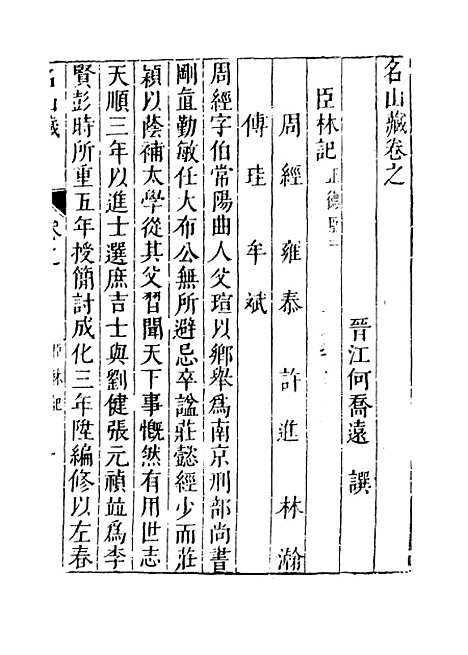 名山藏卷之
晉江何喬遠 譔
臣林記 正德臣
周經 雍泰 許進 林瀚
傅珪 牟斌
周經字伯常陽曲人父瑄以鄉舉爲南京刑部尚書
剛直勤敏任大布公無所避忌卒諡莊懿經少而莊
穎以蔭補太學從其父習聞天下事慨然有用世志
天順三年以進士選庶吉士與劉健張元禎竝爲李
賢彭時所重五年授簡討成化三年陞編修以左春
名山藏 卷之 臣林記 一